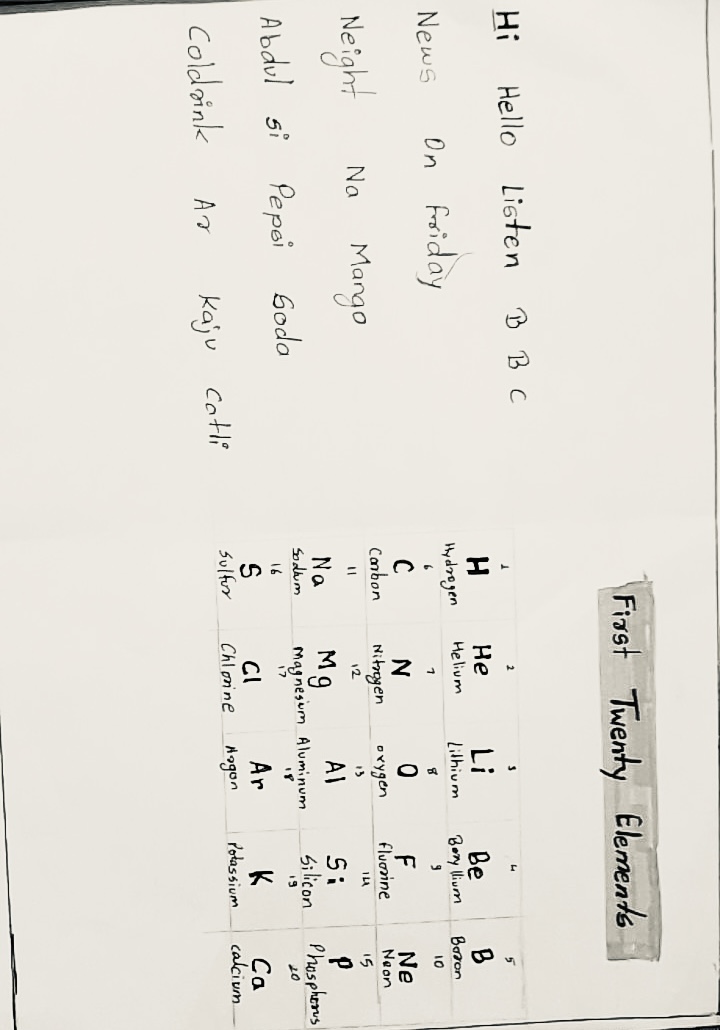 First Twenty Elements
Hi Hello Listen B B C
News On Friday
Neight Na Mango
Abdul si Pepsi Soda
Coldrink Ar Kaju Catli
1 2 3 4 5
H He Li Be B
Hydrogen Helium Lithium Beryllium Boron
6 7 8 9 10
C N O F Ne
Carbon Nitrogen oxygen fluorine Neon
11 12 13 14 15
Na Mg Al Si P
Sodium Magnesium Aluminum Silicon Phosphorus
16 17 18 19 20
S Cl Ar K Ca
Sulfur Chlorine Argon Potassium calcium